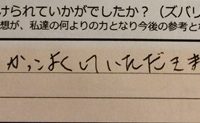 けられていかがでしたか？（ズバリ
想が、私達の何よりの力となり今後の参考とな
かっこよくしていただきま